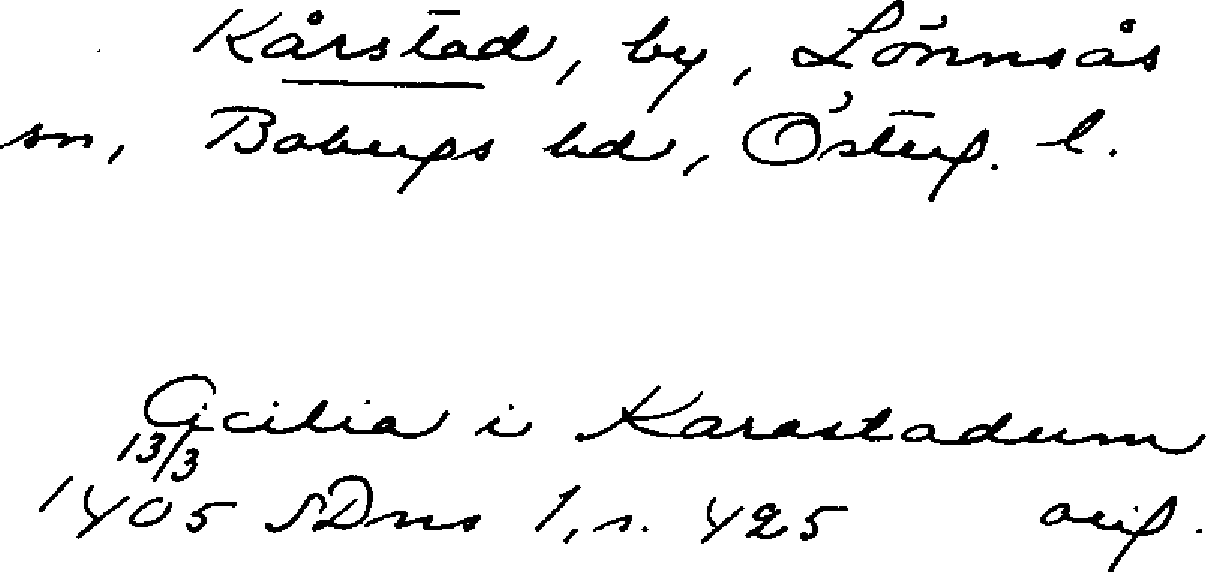 Kårstad, by, Lönnsås
sn, Bobergs hd, Österg. l.
Cicilia i Karastadum
13/3
1405 SDns 1, s. 425 orig.